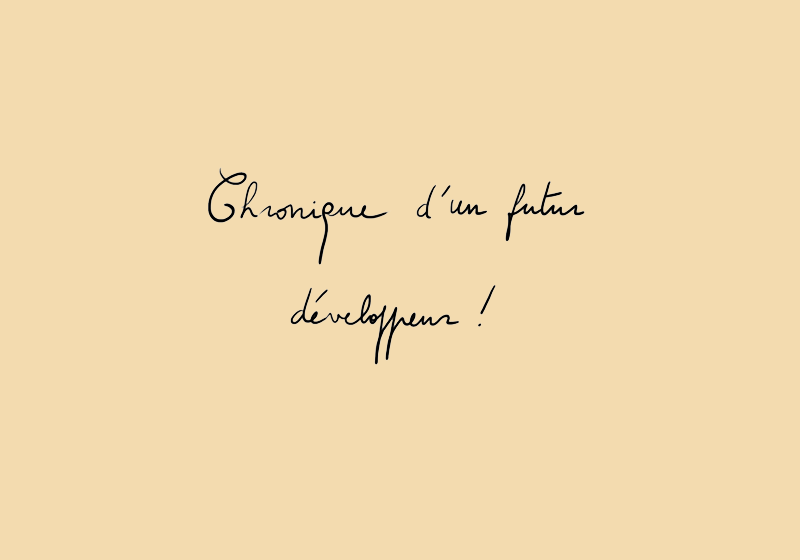 Chronique d'un futur
développeur !